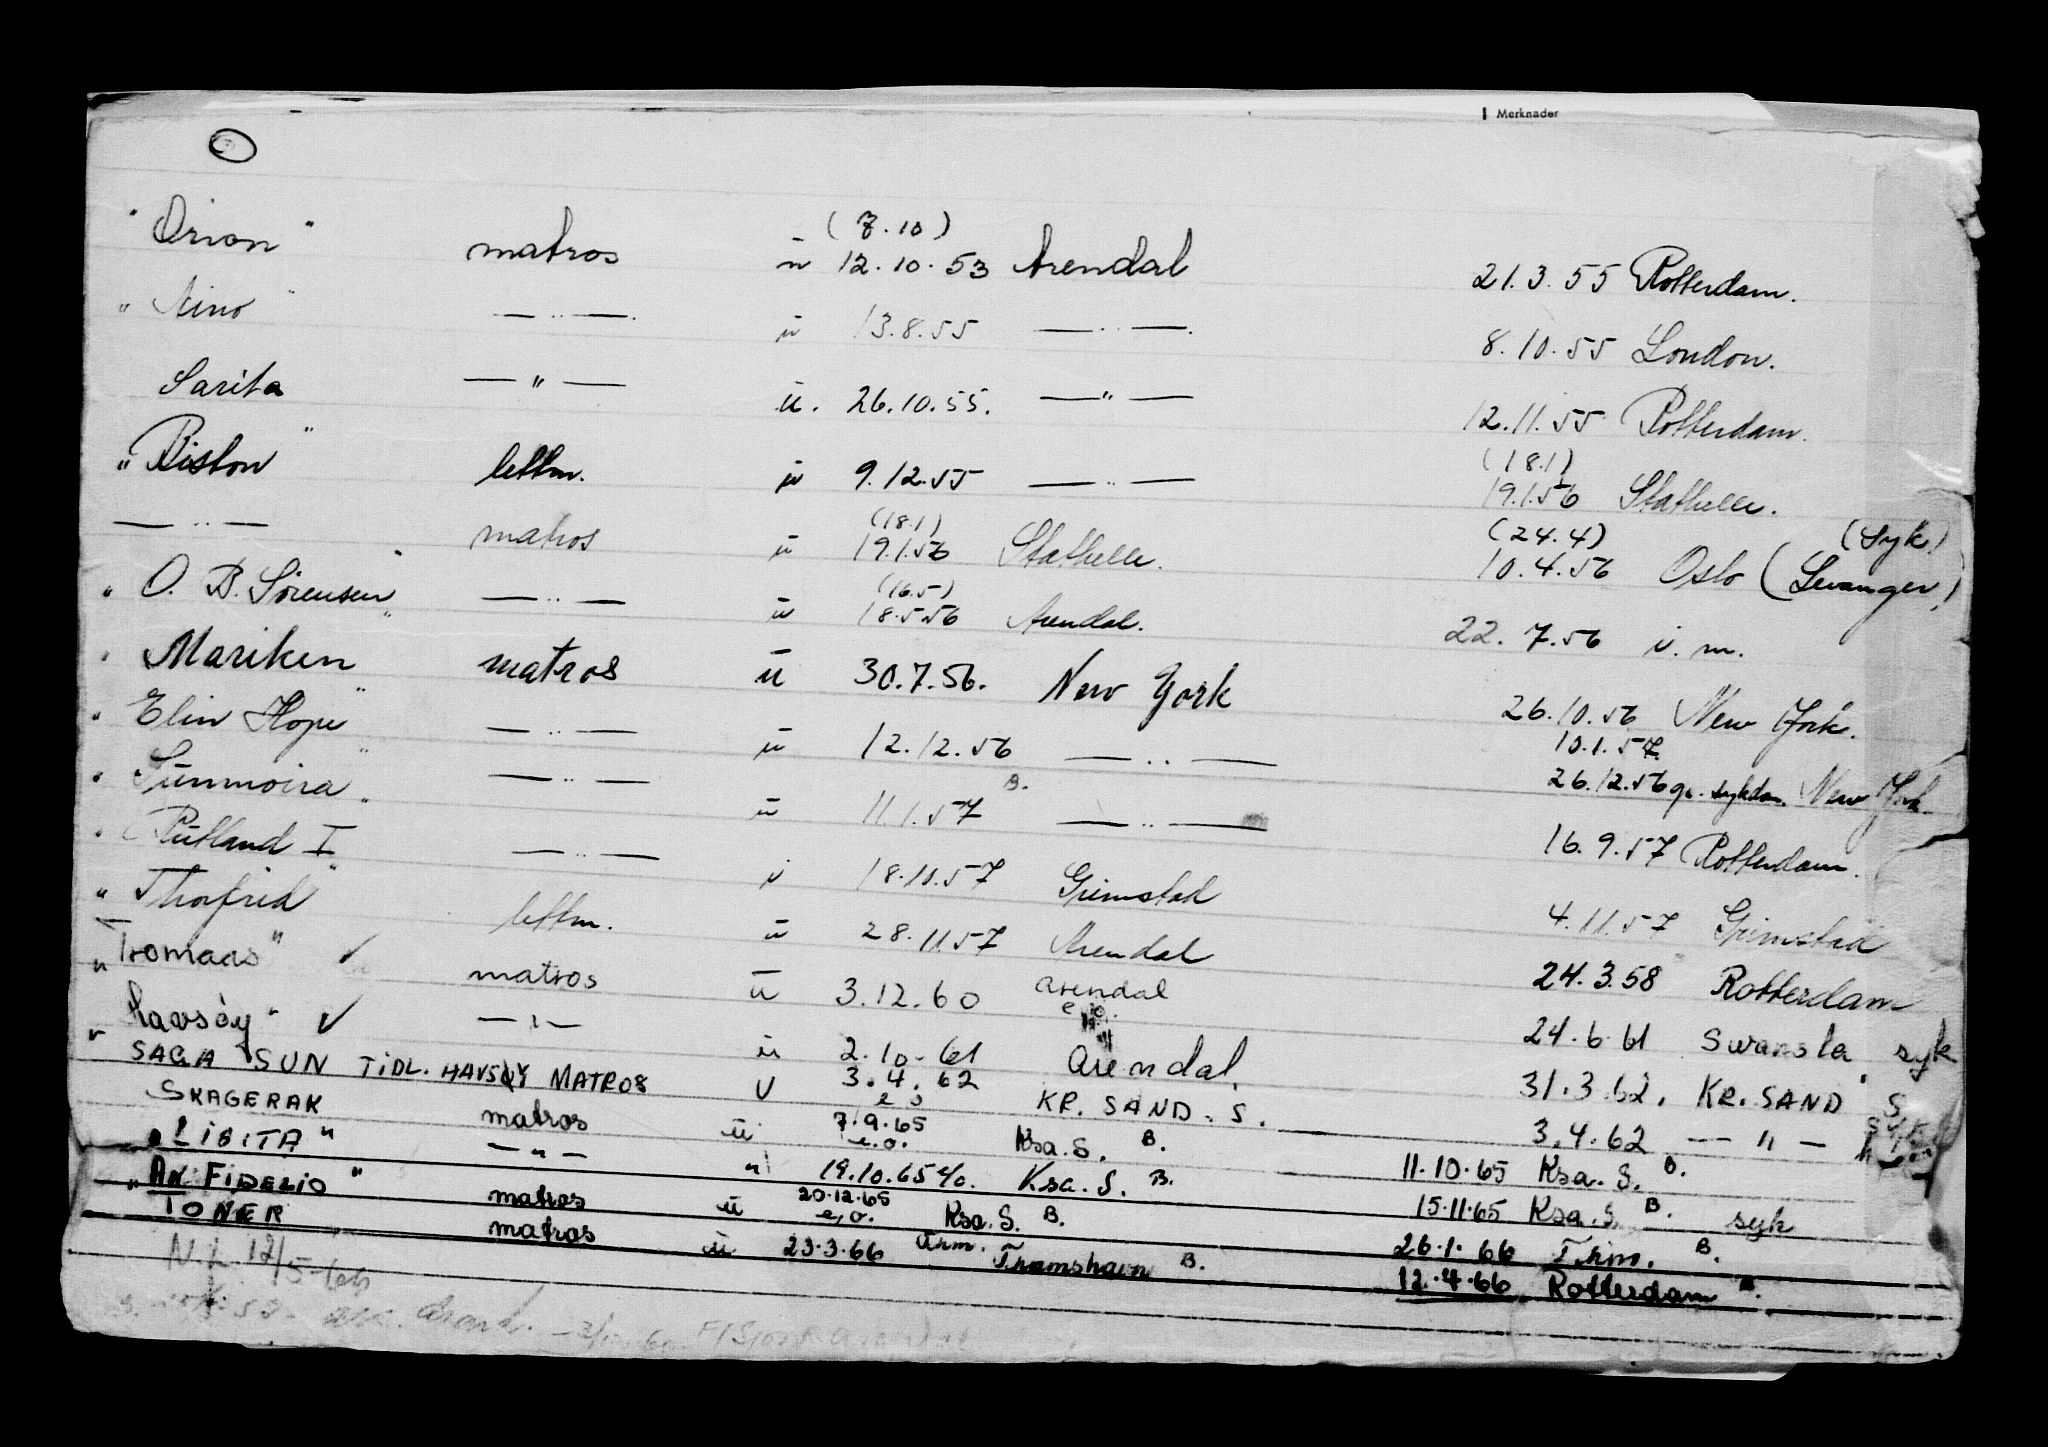 Merknader
"Orion" matros ü (7.10) 12.10.53 Arendal 21.3.55 Rotterdam.
"Nino" — " — ü 13.8.55 — " — 8.10.55 London.
Sarita — " — ü. 26.10.55. — " — 12.11.55 Rotterdam.
"Riston" lettm. ü 9.12.55 — " — (18.1) 19.1.56 Stathelle.
— " — matros ü (18.1) 19.1.56 Stathelle. (24.4) 10.4.56 Oslo (Levanger) (syk)
"O. B. Sörensen" — " — ü (16.5) 18.5.56 Arendal. 22.7.56 i. m.
"Mariken" matros ü 30.7.56. New York 26.10.56 New York.
"Elin Hope" — " — ü 12.12.56 — " — 10.1.57 26.12.56 gr. sykdom. New York.
"Sunmoira" — " — ü 11.1.57 B. — " — 16.9.57 Rotterdam.
"Rutland I" — " — ü 18.10.57 Grimstad 4.11.57 Grimstad
"Thorfrid" lettm. ü 28.11.57 Arendal 24.3.58 Rotterdam
"Tromaas" ✓ matros ü 3.12.60 Arendal e.o. 24.6.61 Swansea syk
"Havsöy" ✓ — " — ü 2.10-61 Arendal. 31.3.62. KR. SAND S.
SAGA SUN TIDL. HAVSØY MATROS U 3.4.62 e o KR. SAND. S. 3.4.62 — " —
SKAGERAK matros ü 7.9.65 e.o. Ksa. S. B. 11.10.65 Ksa. S. B.
"LIBITA" — " — " 19.10.65 Ksa. S. B. 15.11.65 Ksa. S. B. syk
"AK FIDELIO" matros ü 20.12.65 e.o. Ksa. S. B. 26.1.66 B.
TONER matros ü 23.3.66 Thamshavn B. 12.4.66 Rotterdam B.
12/5-66